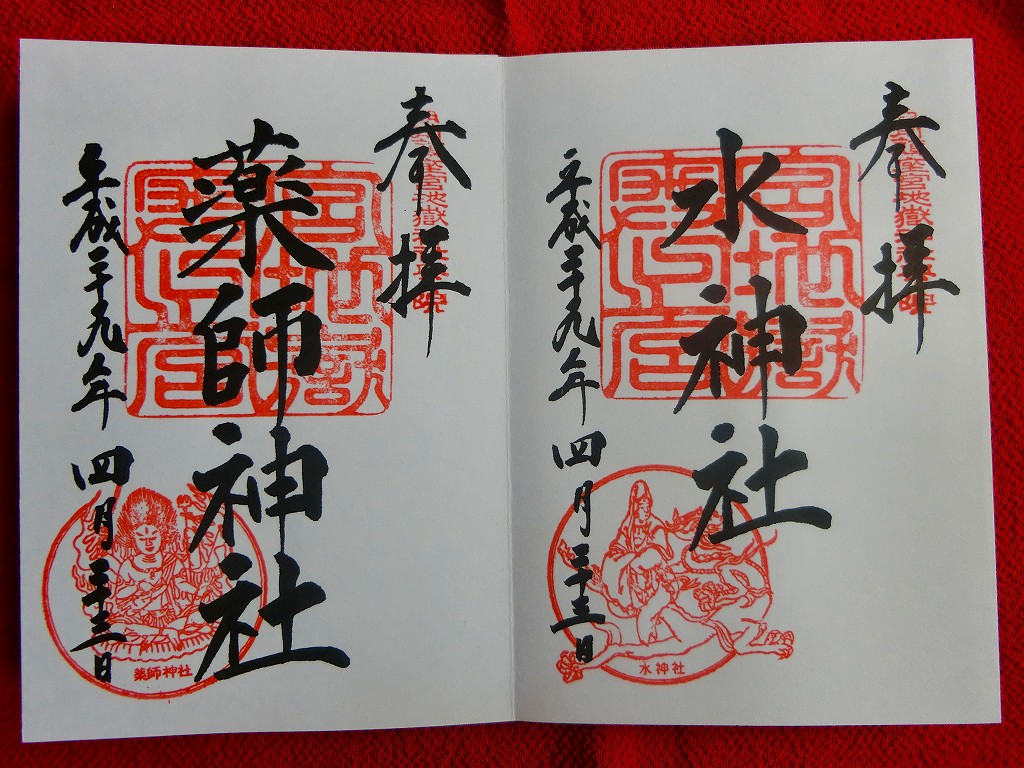 奉拝
水神社
宮地嶽
平成二十九年四月二十三日
水神社
奉拝
薬師神社
宮地嶽
平成二十九年四月二十三日
薬師神社